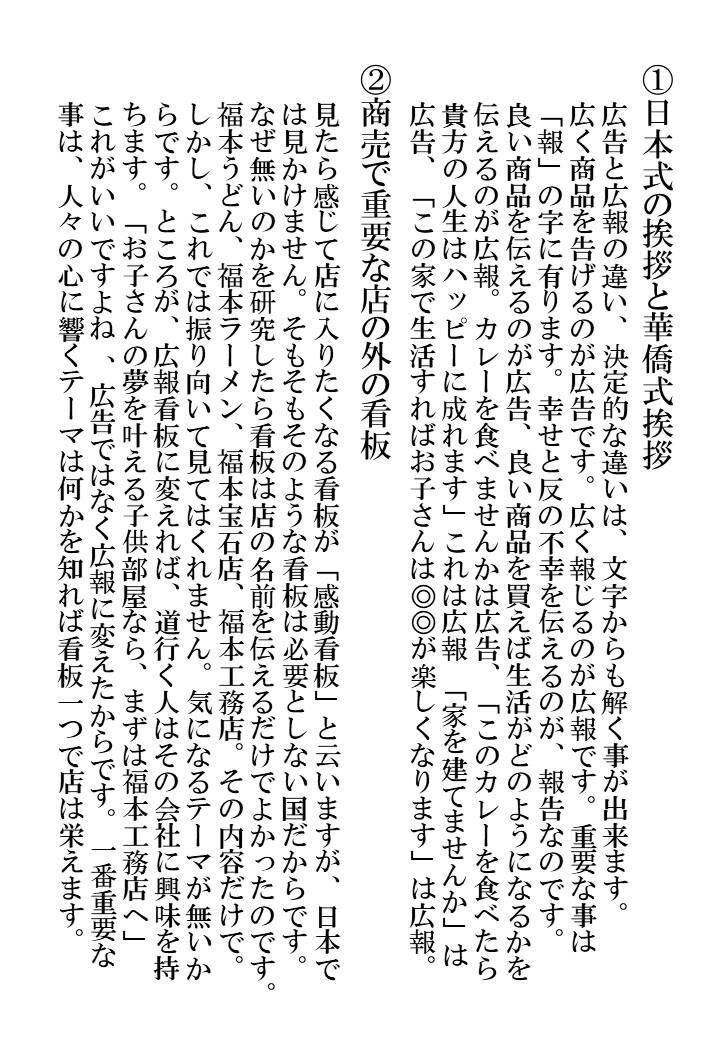 ①日本式の挨拶と華僑式挨拶
広告と広報の違い、決定的な違いは、文字からも解く事が出来ます。
広く商品を告げるのが広告です。広く報じるのが広報です。重要な事は
「報」の字に有ります。幸せと反の不幸を伝えるのが、報告なのです。
良い商品を伝えるのが広告、良い商品を買えば生活がどのようになるかを
伝えるのが広報。カレーを食べませんかは広告、「このカレーを食べたら
貴方の人生はハッピーに成れます」これは広報「家を建てませんか」は
広告、「この家で生活すればお子さんは◎◎が楽しくなります」は広報。
②商売で重要な店の外の看板
見たら感じて店に入りたくなる看板が「感動看板」と云いますが、日本で
は見かけません。そもそもそのような看板は必要としない国だからです。
なぜ無いのかを研究したら看板は店の名前を伝えるだけでよかったのです。
福本うどん、福本ラーメン、福本宝石店、福本工務店。その内容だけで。
しかし、これでは振り向いて見てはくれません。気になるテーマが無いか
らです。ところが、広報看板に変えれば、道行く人はその会社に興味を持
ちます。「お子さんの夢を叶える子供部屋なら、まずは福本工務店へ」
これがいいですよね、広告ではなく広報に変えたからです。一番重要な
事は、人々の心に響くテーマは何かを知れば看板一つで店は栄えます。